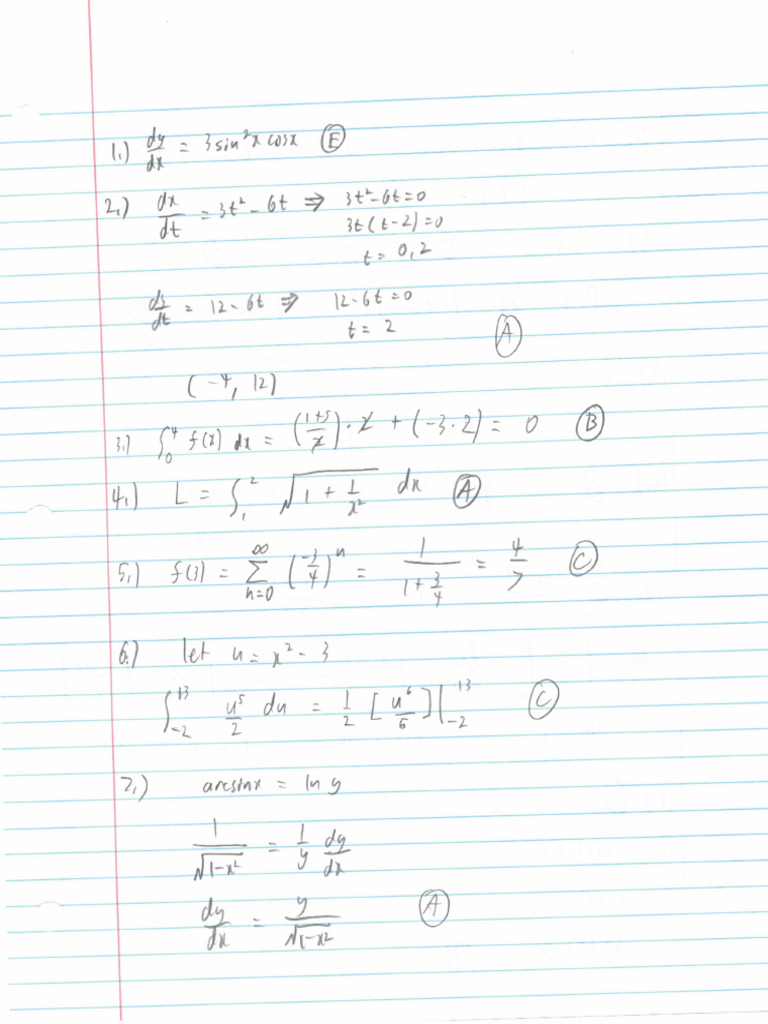 1.) dy/dx = 3sin²x cosx Ⓔ
2.) dx/dt = 3t² - 6t ⇒ 3t² - 6t = 0
3t(t-2) = 0
t = 0, 2
dy/dt = 12 - 6t ⇒ 12 - 6t = 0
t = 2 Ⓐ
(-4, 12)
3.) ∫₀⁴ f(x) dx = ((1+5)/2)·2 + (-3·2) = 0 Ⓑ
4.) L = ∫₁² √(1 + 1/x²) dx Ⓐ
5.) f(3) = ∑_{n=0}^{∞} (-3/4)ⁿ = 1/(1 + 3/4) = 4/7 Ⓒ
6.) let u = x² - 3
∫₋₂¹³ u⁵/2 du = 1/2 [u⁶/6]|₋₂¹³ Ⓒ
7.) arcsinx = ln y
1/√(1-x²) = 1/y dy/dx
dy/dx = y/√(1-x²) Ⓐ